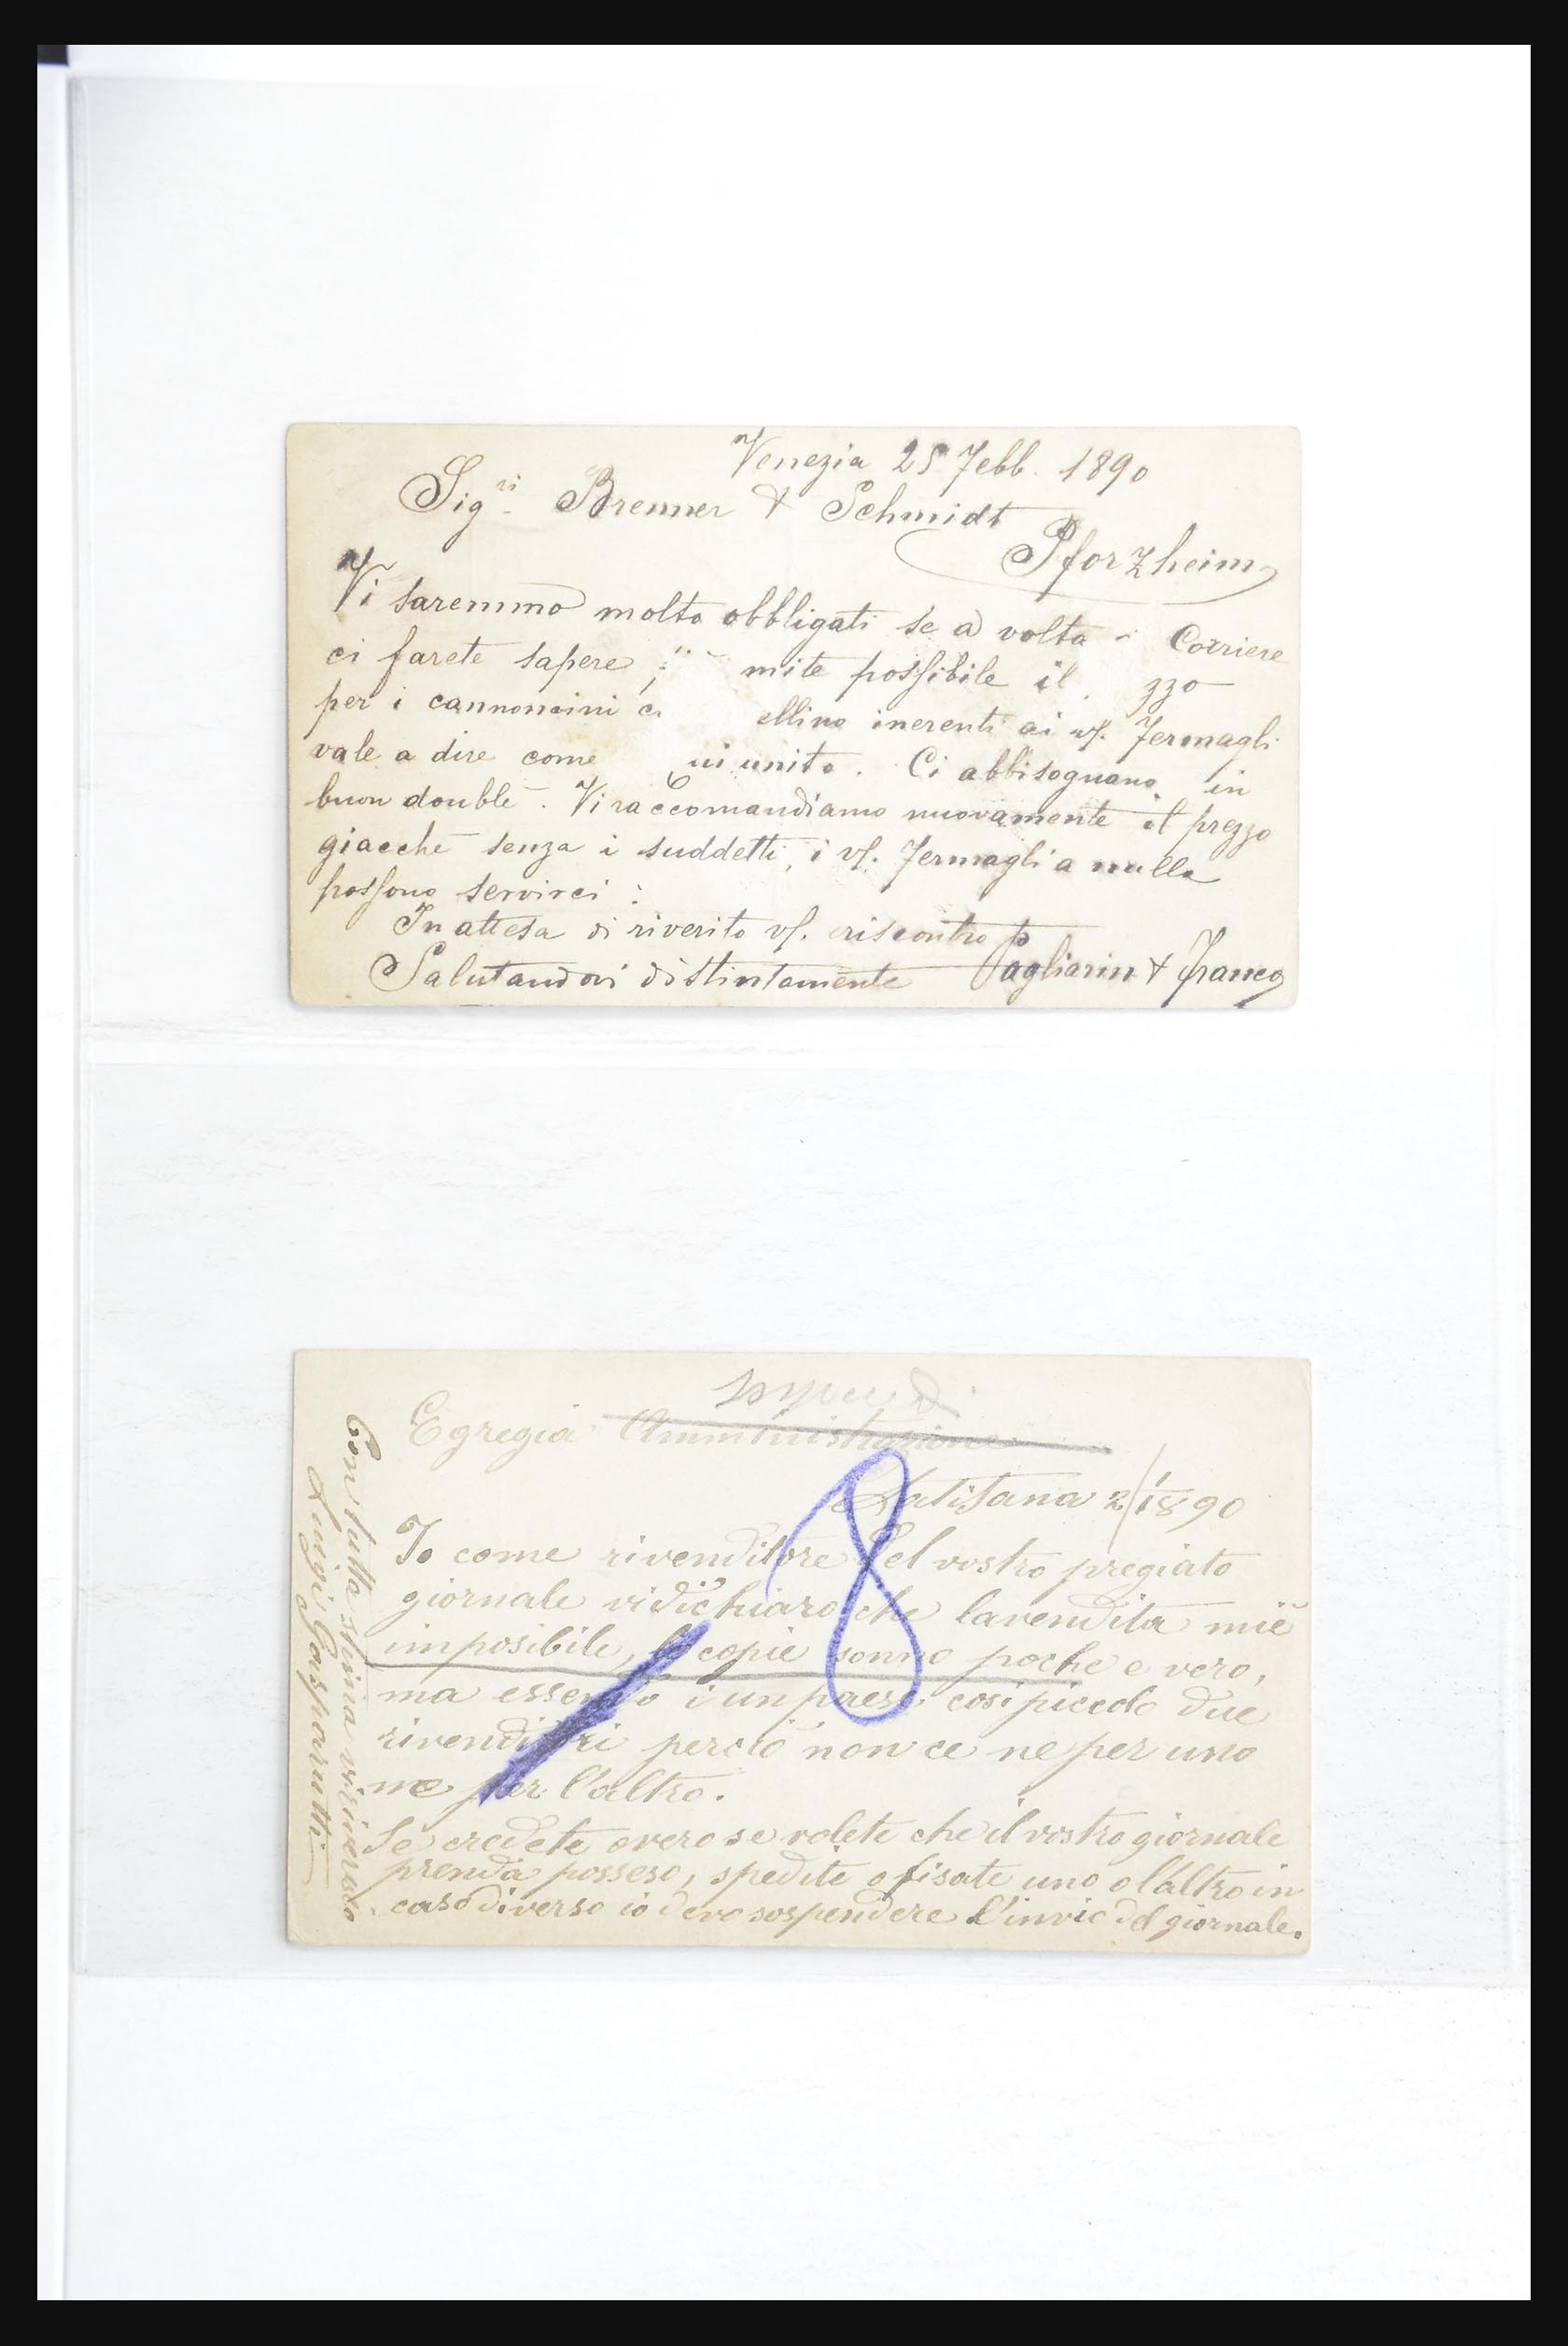 Venezia 25 Febb. 1890
Sig.ri Brenner & Schmidt
Pforzheim
Vi saremmo molto obbligati se a volta Corriere
ci farete sapere mite possibile il zzo
per i cannoncini c ellino inerenti ai vs. Fermagli
vale a dire come ui unito. Ci abbisognano in
buon doublè. Vi raccomandiamo nuovamente il prezzo
giacchè senza i suddetti, i vs. Fermagli a nulla
possono servirci :
In attesa di riverito vs. riscontro
Salutandovi distintamente Pagliarin & Franco
Egregia Amministrazione
Latisana 2/1 1890
Io come rivenditore del vostro pregiato
giornale vi dichiaro che la vendita mi è
imposibile, le copie sonno poche e vero,
ma essendo i un paese cosi piccolo due
rivenditri perciò non ce ne per uno
ne per l'altro.
Se credete overo se volete che il vostro giornale
prenda posseso, spedite o fisate uno o l'altro in
caso diverso io devo sospendere l'invio del giornale.
Con tutta stima vi riverisco
Luigi Gasparutti
8